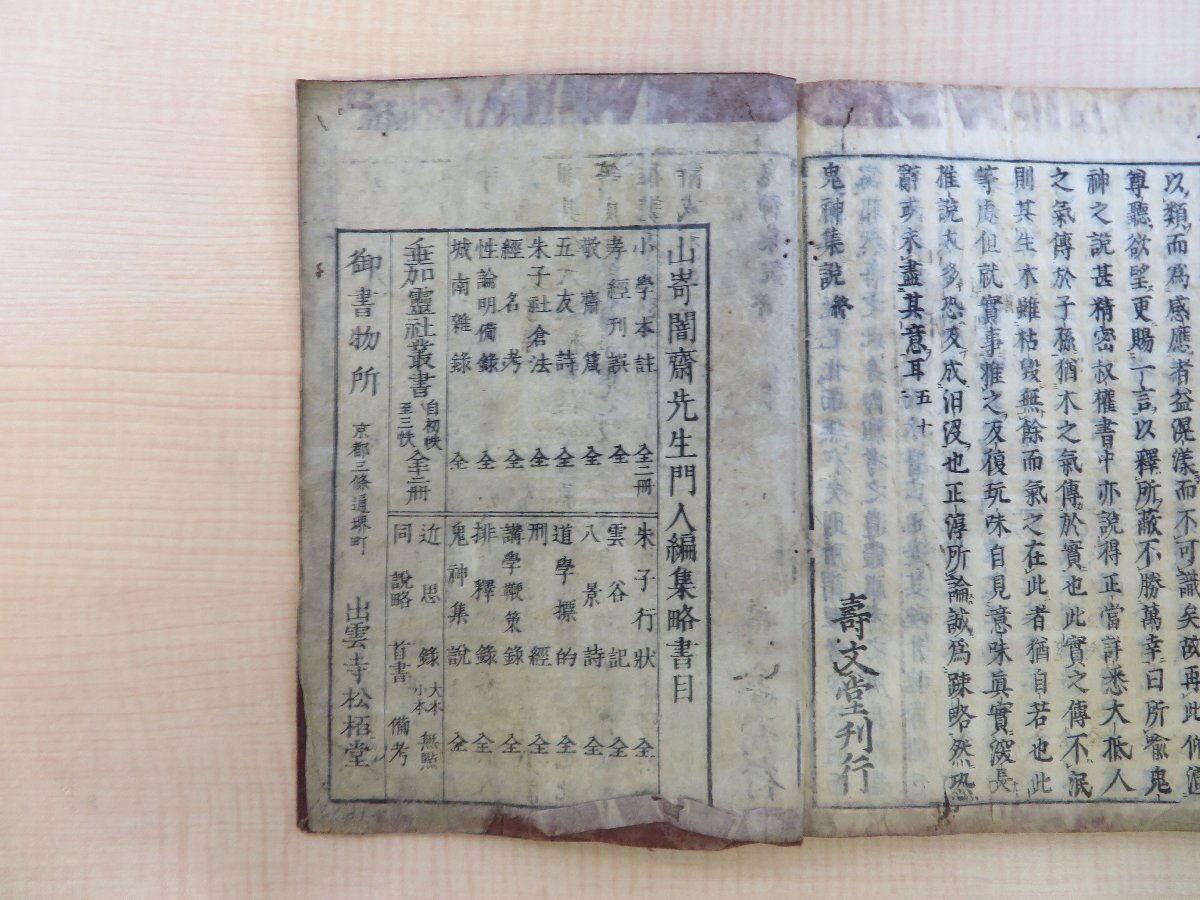 以類而為感應者益滉漾而不可識矣故再此仰瀆
尊聽欲望更賜一言以釋所蔽不勝萬幸曰所喻鬼
神之說甚精密叔權書中亦說得正當詳悉大抵人
之氣傳於子孫猶木之氣傳於實也此實之傳不泯
則其生木雖枯毀無餘而氣之在此者猶自若也此
等處但就實事推之反復玩味自見意味真實深長
推說太多恐反成汨没也正淳所論誠為踈略然恐
辭或未盡其意耳 五十
鬼神集說終
壽文堂刊行
山嵜闇齋先生門人編集略書目
小學本註 全二冊
孝經刊誤 全
敬齋箴 全
五友詩 全
朱子社倉法 全
經名考 全
性論明備錄 全
城南雜錄 全
垂加靈社叢書 自初帙至三帙 全三冊
朱子行狀 全
雲谷記 全
八景詩 全
道學摽的 全
刑經 全
講學鞭策錄 全
排釋錄 全
鬼神集說 全
近思錄 大本小本 無點
同 說略 首書 備考
御書物所 京都三條通堺町 出雲寺松栢堂